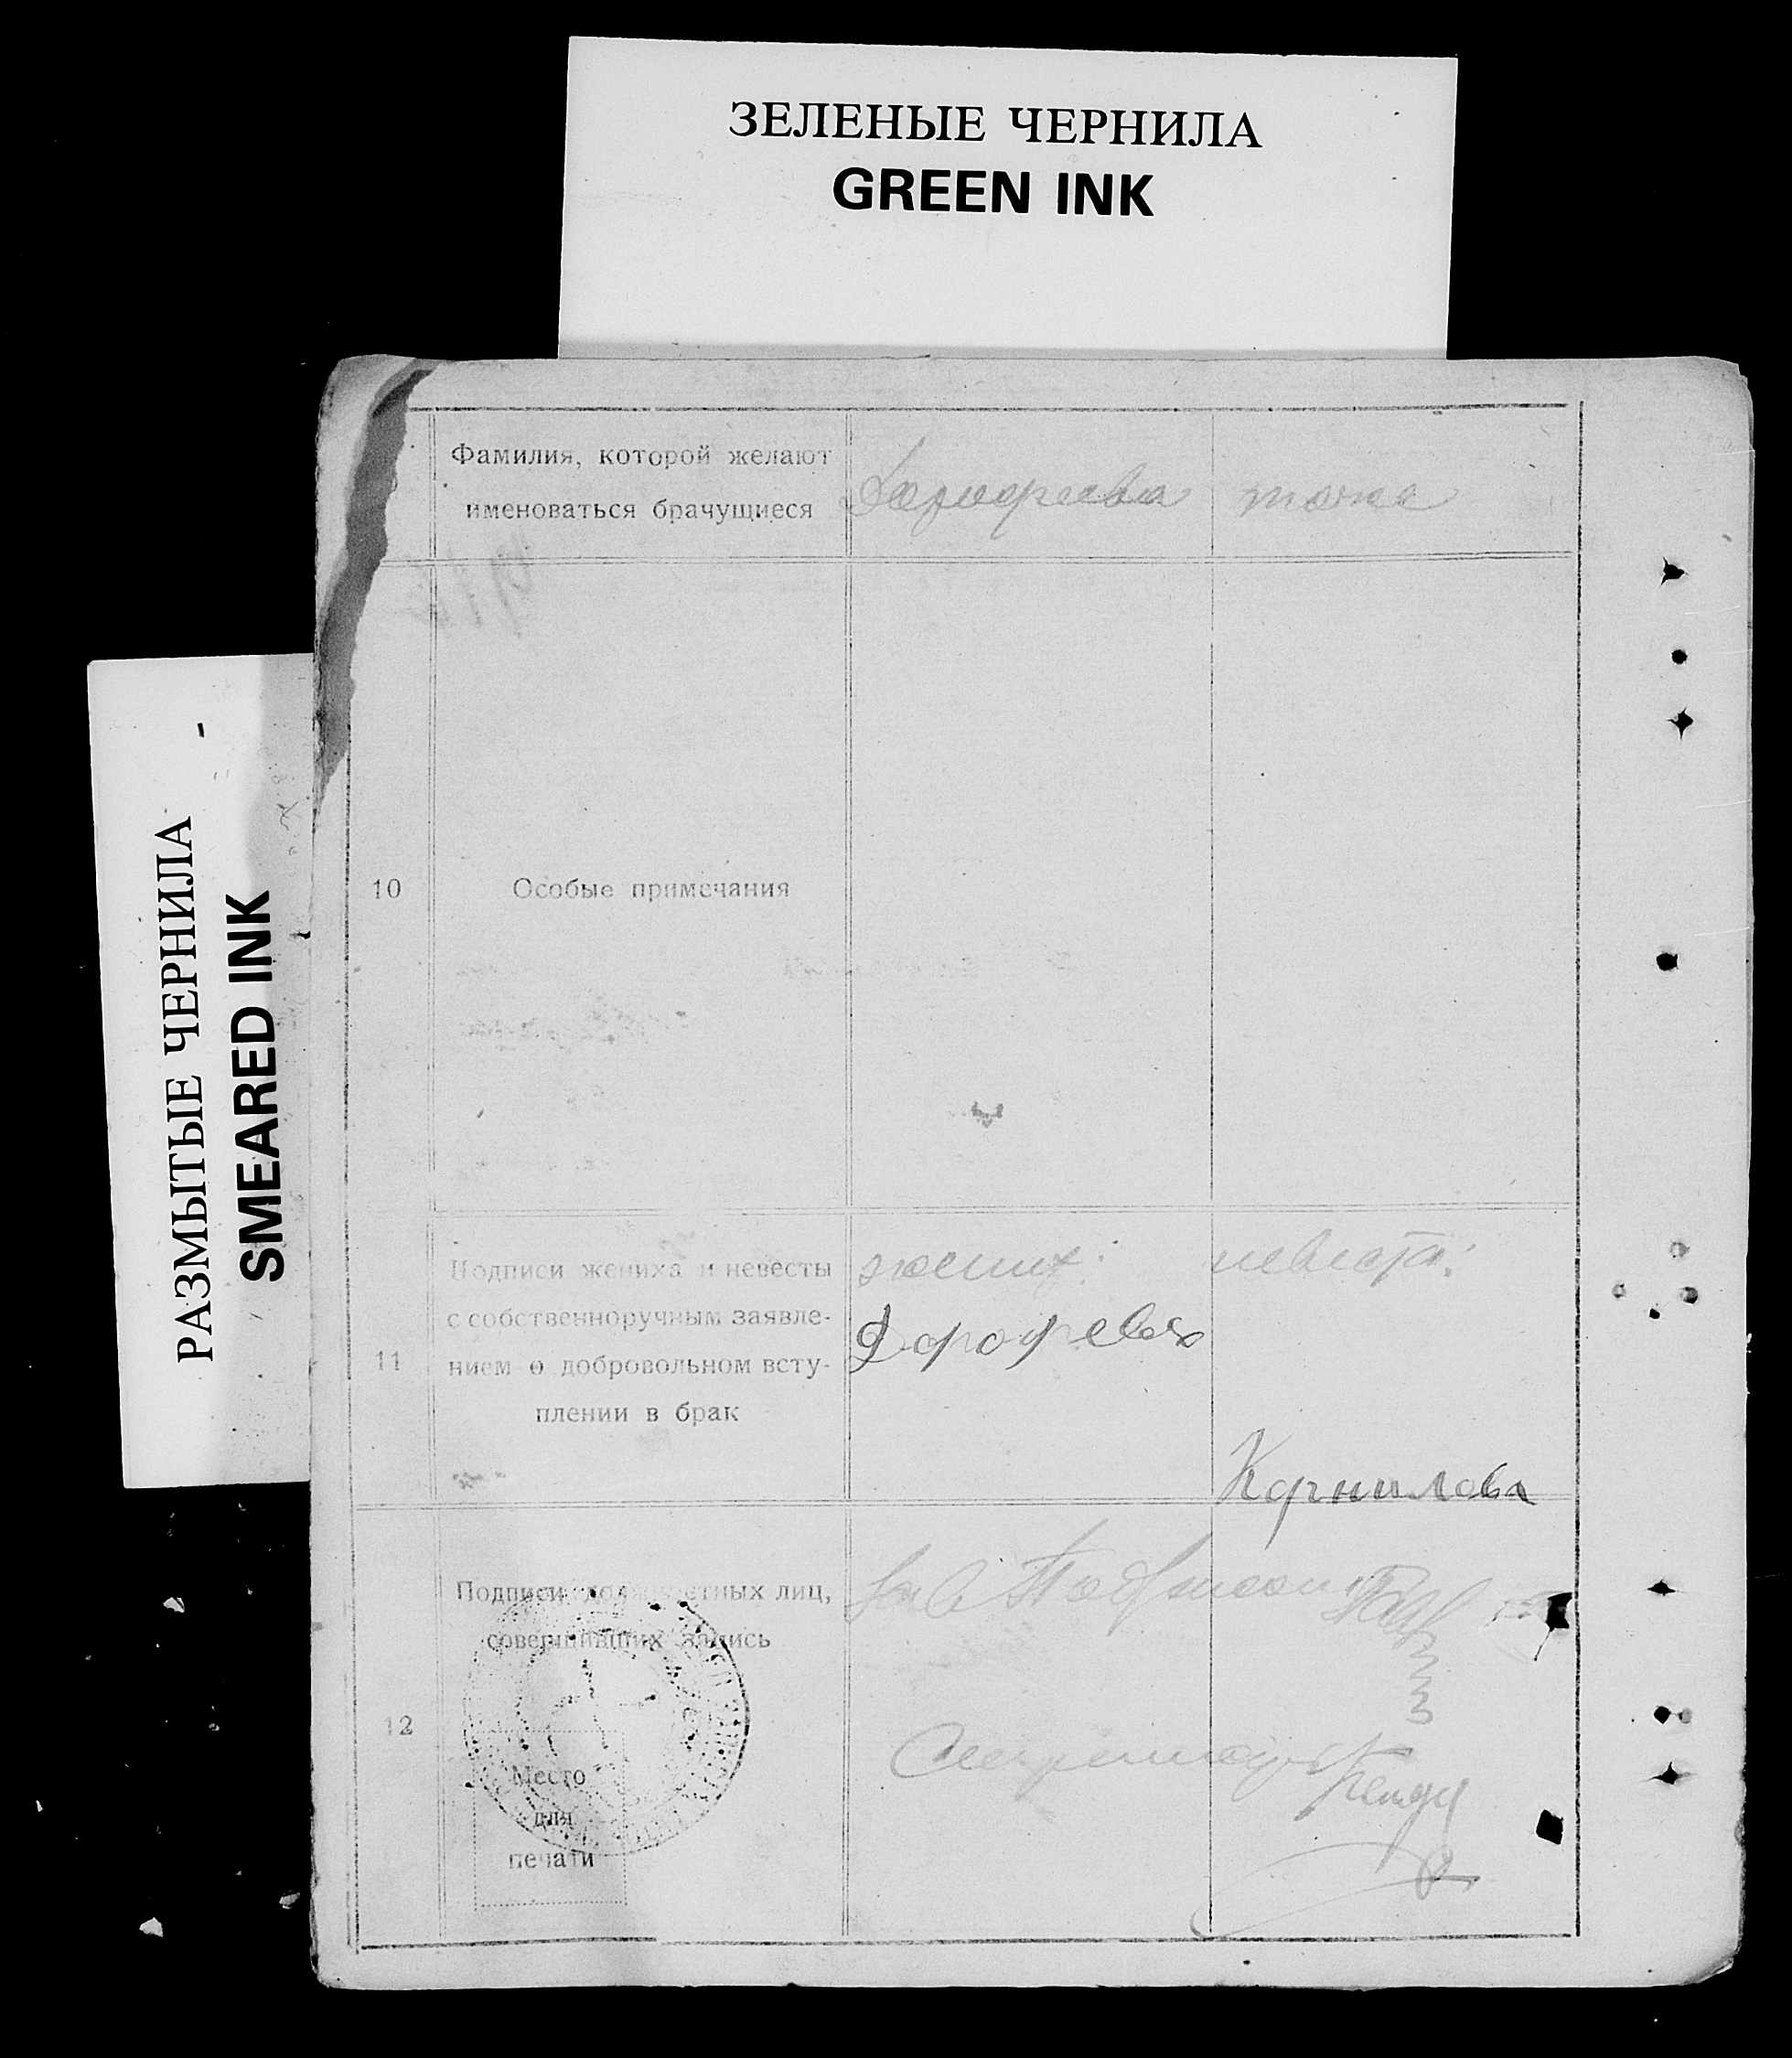 ЗЕЛЕНЫЕ ЧЕРНИЛА
GREEN INK
РАЗМЫТЫЕ ЧЕРНИЛА
SMEARED INK
Фамилия, которой желают
именоваться брачущиеся
Дорофеева
тоже
10
Особые примечания
11
Подписи жениха и невесты
с собственноручным заявле-
нием о добровольном всту-
плении в брак
жених:
Дорофеев
невеста:
Корнилова
12
Подписи должностных лиц,
совершивших запись
Место
для
печати
Зав.
Секретарь